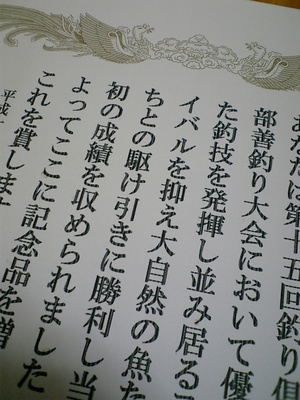 あなたは第十五回釣り倶
部善釣り大会において優
た釣技を発揮し並み居る
イバルを抑え大自然の魚た
ちとの駆け引きに勝利し当
初の成績を収められました
よってここに記念品を贈
これを賞します
平成